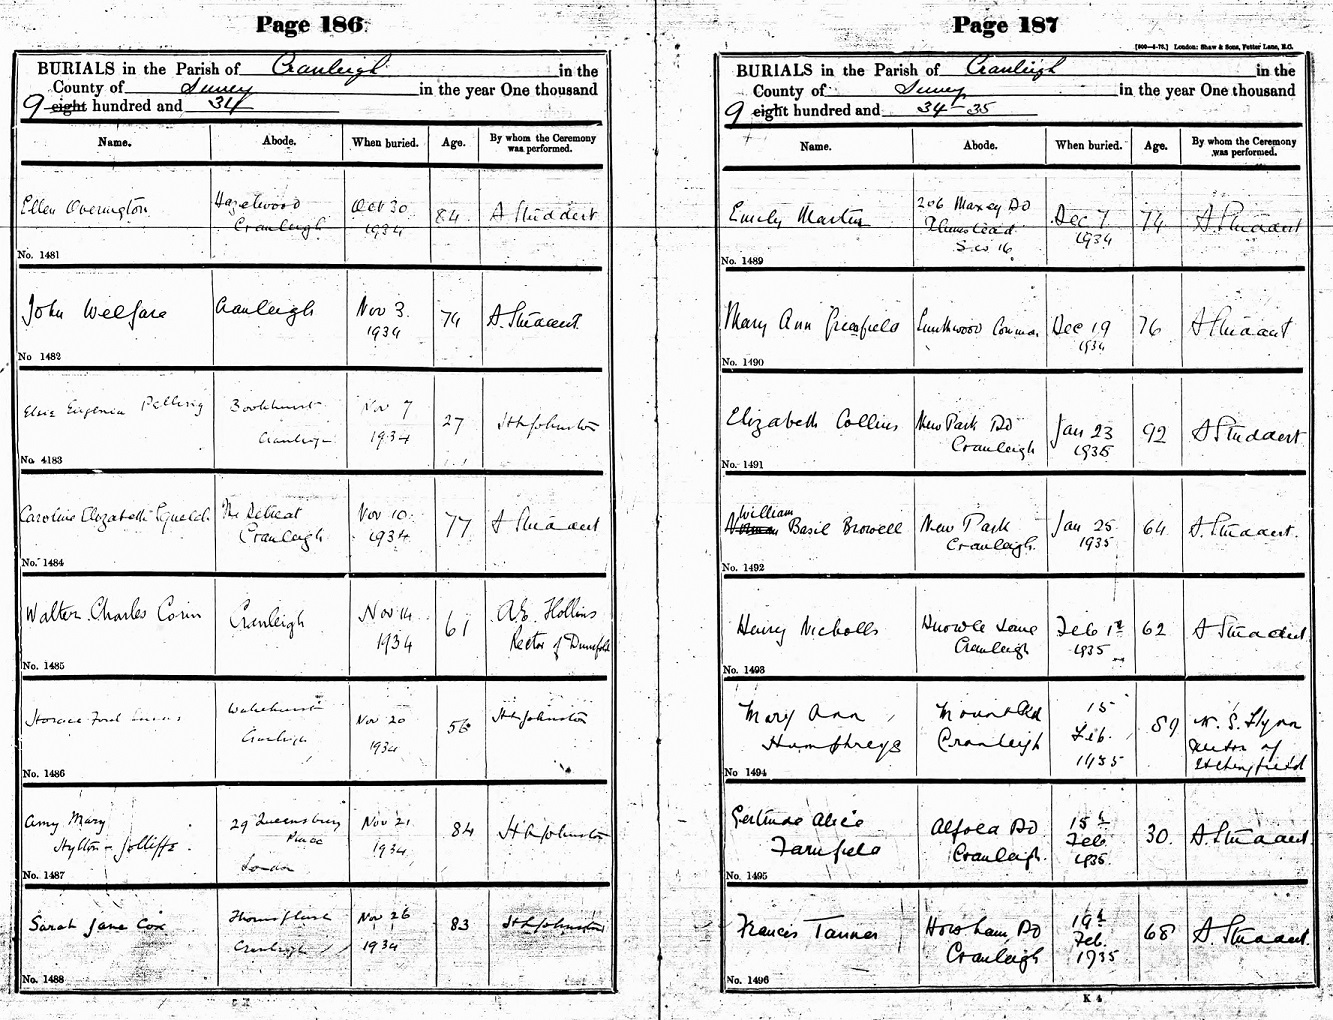 Page 186
BURIALS in the Parish of Cranleigh in the
County of Surrey in the year One thousand
9 eight hundred and 34
Name. Abode. When buried. Age. By whom the Ceremony was performed.
Ellen Overington Hazelwood Cranleigh Oct 30 1934 84 A Studdert
No. 1481
John Welfare Cranleigh Nov 3. 1934 74 A. Studdert.
No 1482
Elsie Eugenia Pelling Bookhurst Cranleigh Nov 7 1934 27
No. 4183
Caroline Elizabeth Squelch The Retreat Cranleigh Nov 10. 1934 77 A Studdert
No. 1484
Walter Charles Corin Cranleigh Nov 14 1934 61 A.E. Hollins Rector of Dunsfold
No. 1485
Horace Ford Cranleigh Nov 20 1934 56
No. 1486
Amy Mary Hylton-Jolliffe. 29 Queensbury Place London Nov 21 1934 84
No. 1487
Sarah Jane Cox Cranleigh Nov 26 1934 83
No. 1488
Page 187
[900—4-76.] London: Shaw & Sons, Fetter Lane, E.C.
BURIALS in the Parish of Cranleigh in the
County of Surrey in the year One thousand
9 eight hundred and 34-35
Name. Abode. When buried. Age. By whom the Ceremony was performed.
Emily Martin 206 Maxey Rd Plumstead S.W 16. Dec 7 1934 74 A. Studdert
No. 1489
Mary Ann Greenfield Smithwood Common Dec 19 1934 76 A Studdert
No. 1490
Elizabeth Collins New Park Rd Cranleigh Jan 23 1935 92 A Studdert
No. 1491
William Basil Browell New Park Cranleigh. Jan 25 1935 64 A. Studdert.
No. 1492
Henry Nicholls Knowle Lane Cranleigh Feb 1st 1935 62 A Studdert
No. 1493
Mary Ann Humphreys Mount Rd Cranleigh 15 Feb. 1935 89 Flynn Rector of Itchingfield
No 1494
Gertrude Alice Farnfield Alfold Rd Cranleigh. 15th Feb 1935. 30. A. Studdert
No. 1495
Frances Tanner Horsham Rd Cranleigh 19th Feb. 1935 68 A. Studdert
No. 1496
K 4